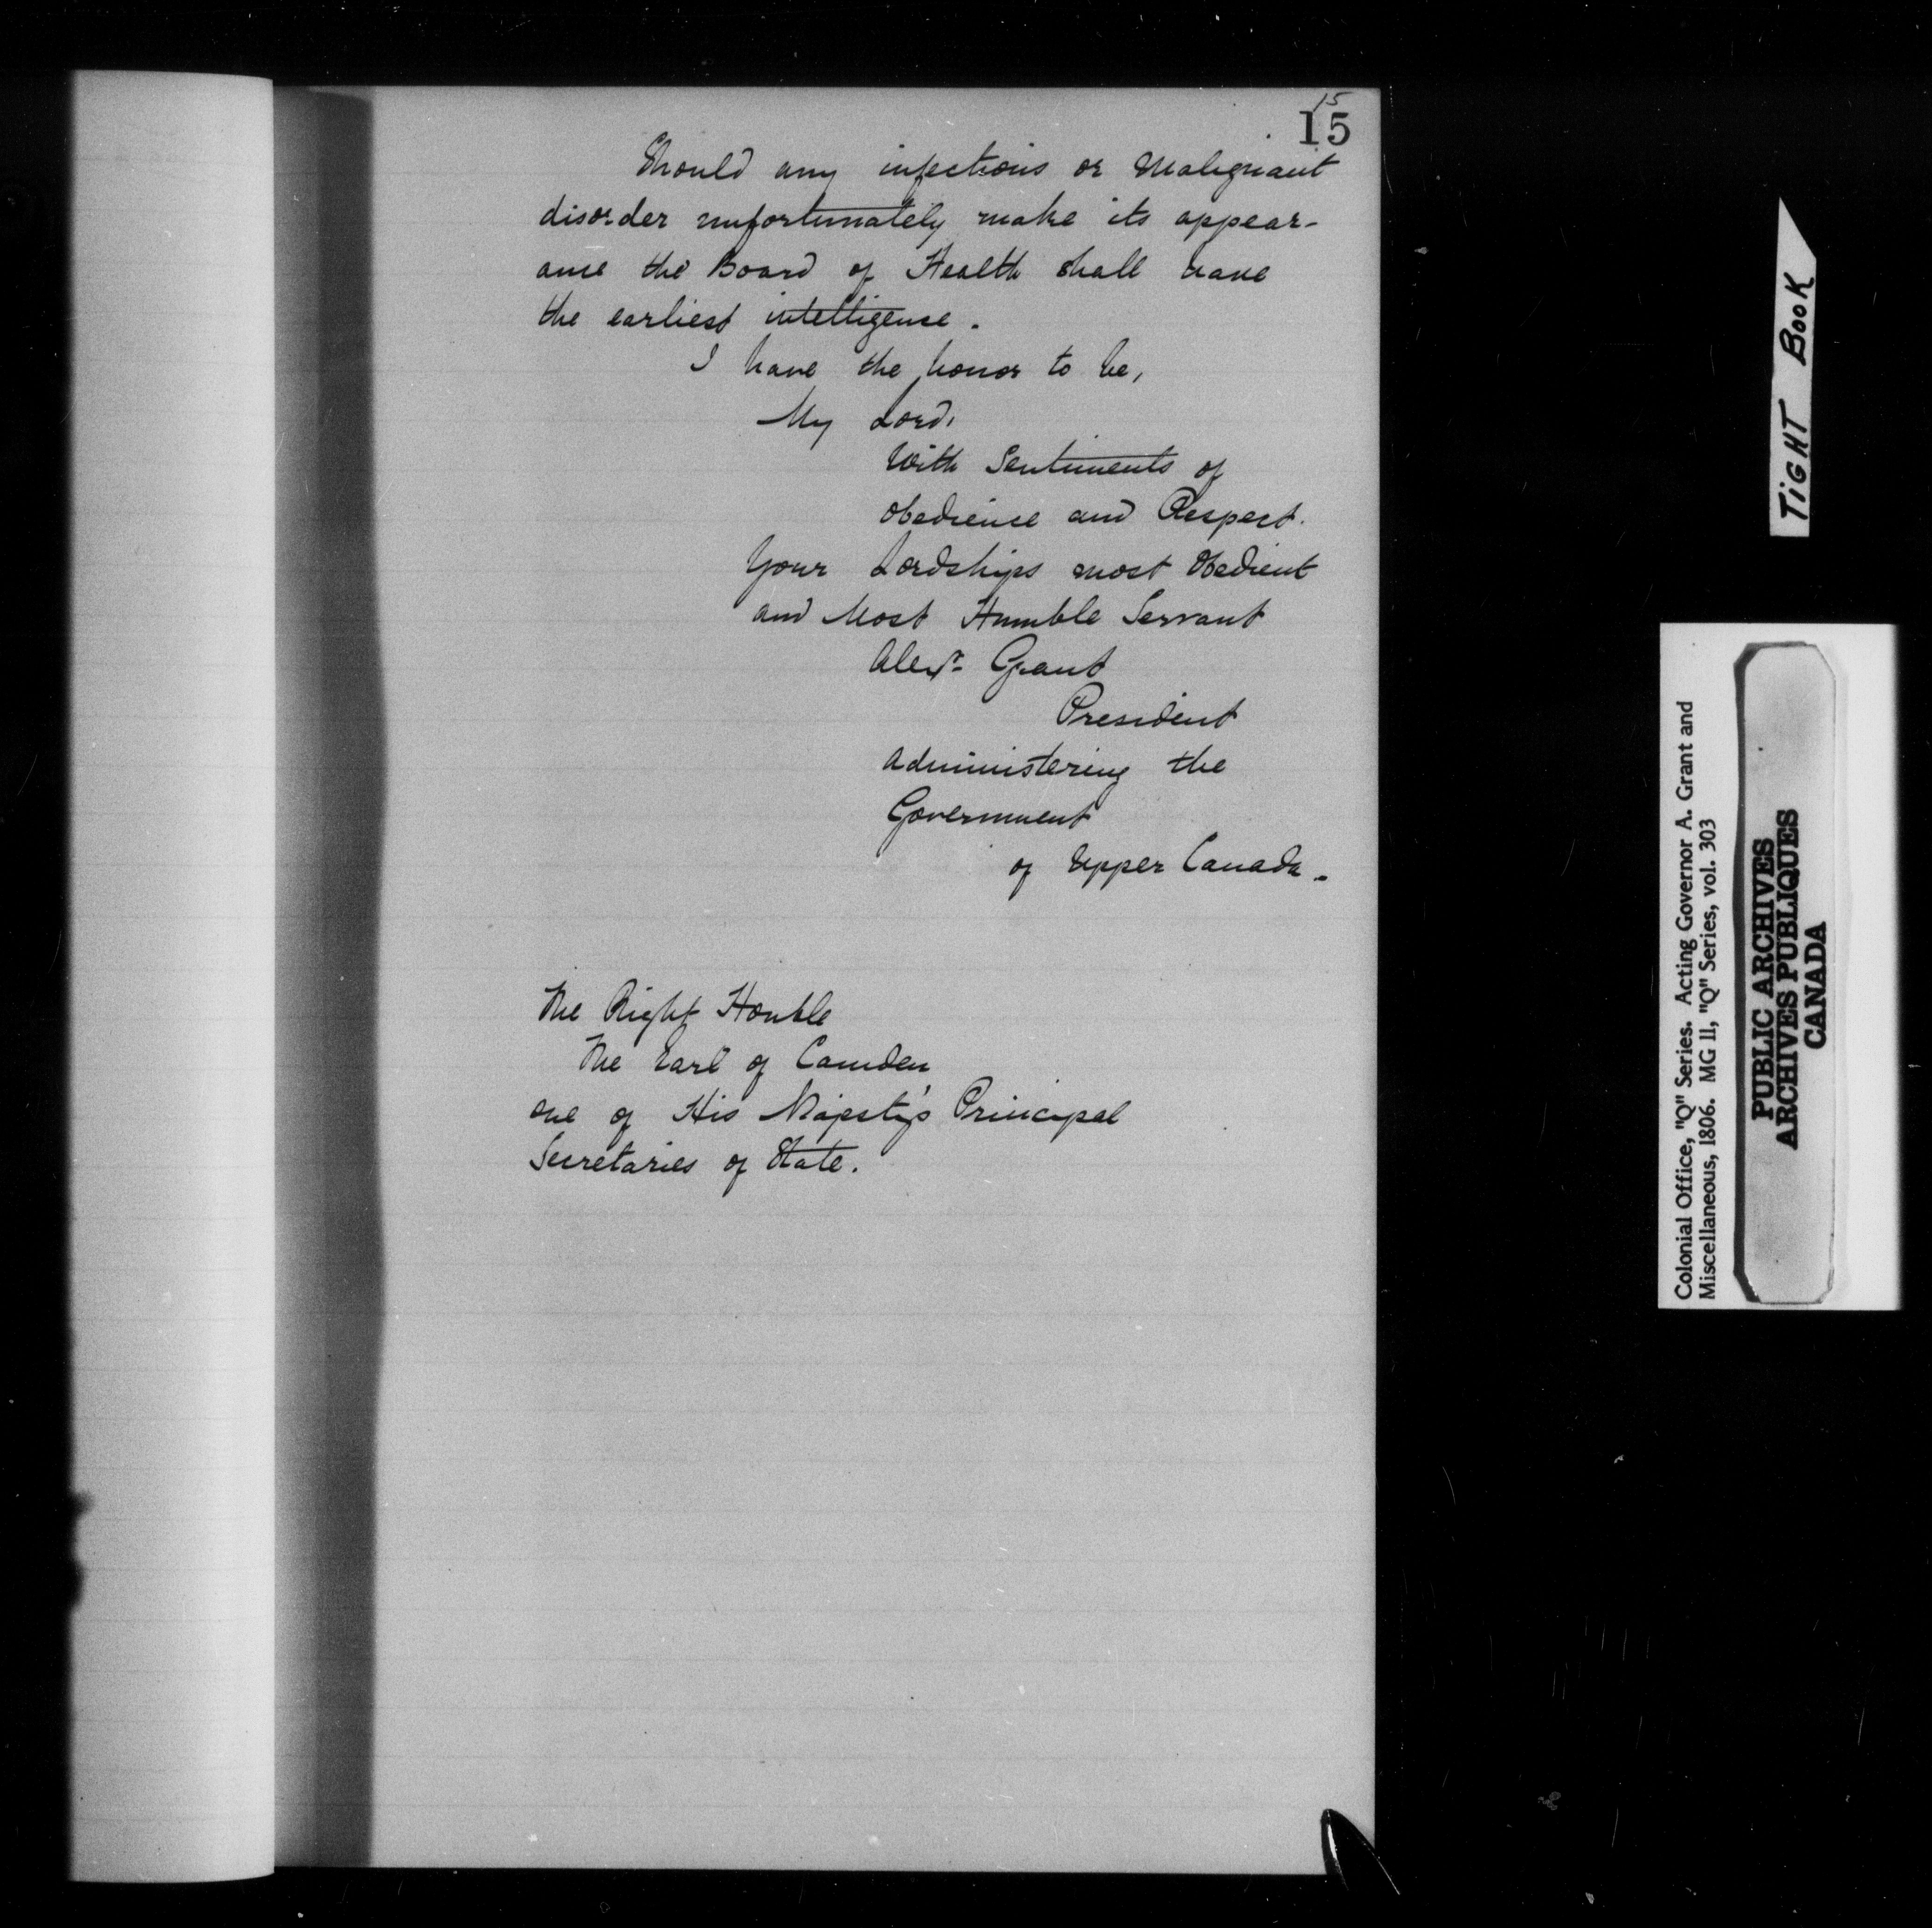 15
15
Should any infectious or Malignant
disorder unfortunately make its appear-
ance the Board of Health shall have
the earliest intelligence.
I have the honor to be,
My Lord,
With Sentiments of
obedience and Respect.
Your Lordships most Obedient
and Most Humble Servant
Alexr. Grant
President
administering the
Government
of Upper Canada.
The Right Honble
The Earl of Camden
one of His Majesty's Principal
Secretaries of State.
TIGHT BOOK
Colonial Office, "Q" Series. Acting Governor A. Grant and
Miscellaneous, 1806. MG 11, "Q" Series, vol. 303
PUBLIC ARCHIVES
ARCHIVES PUBLIQUES
CANADA